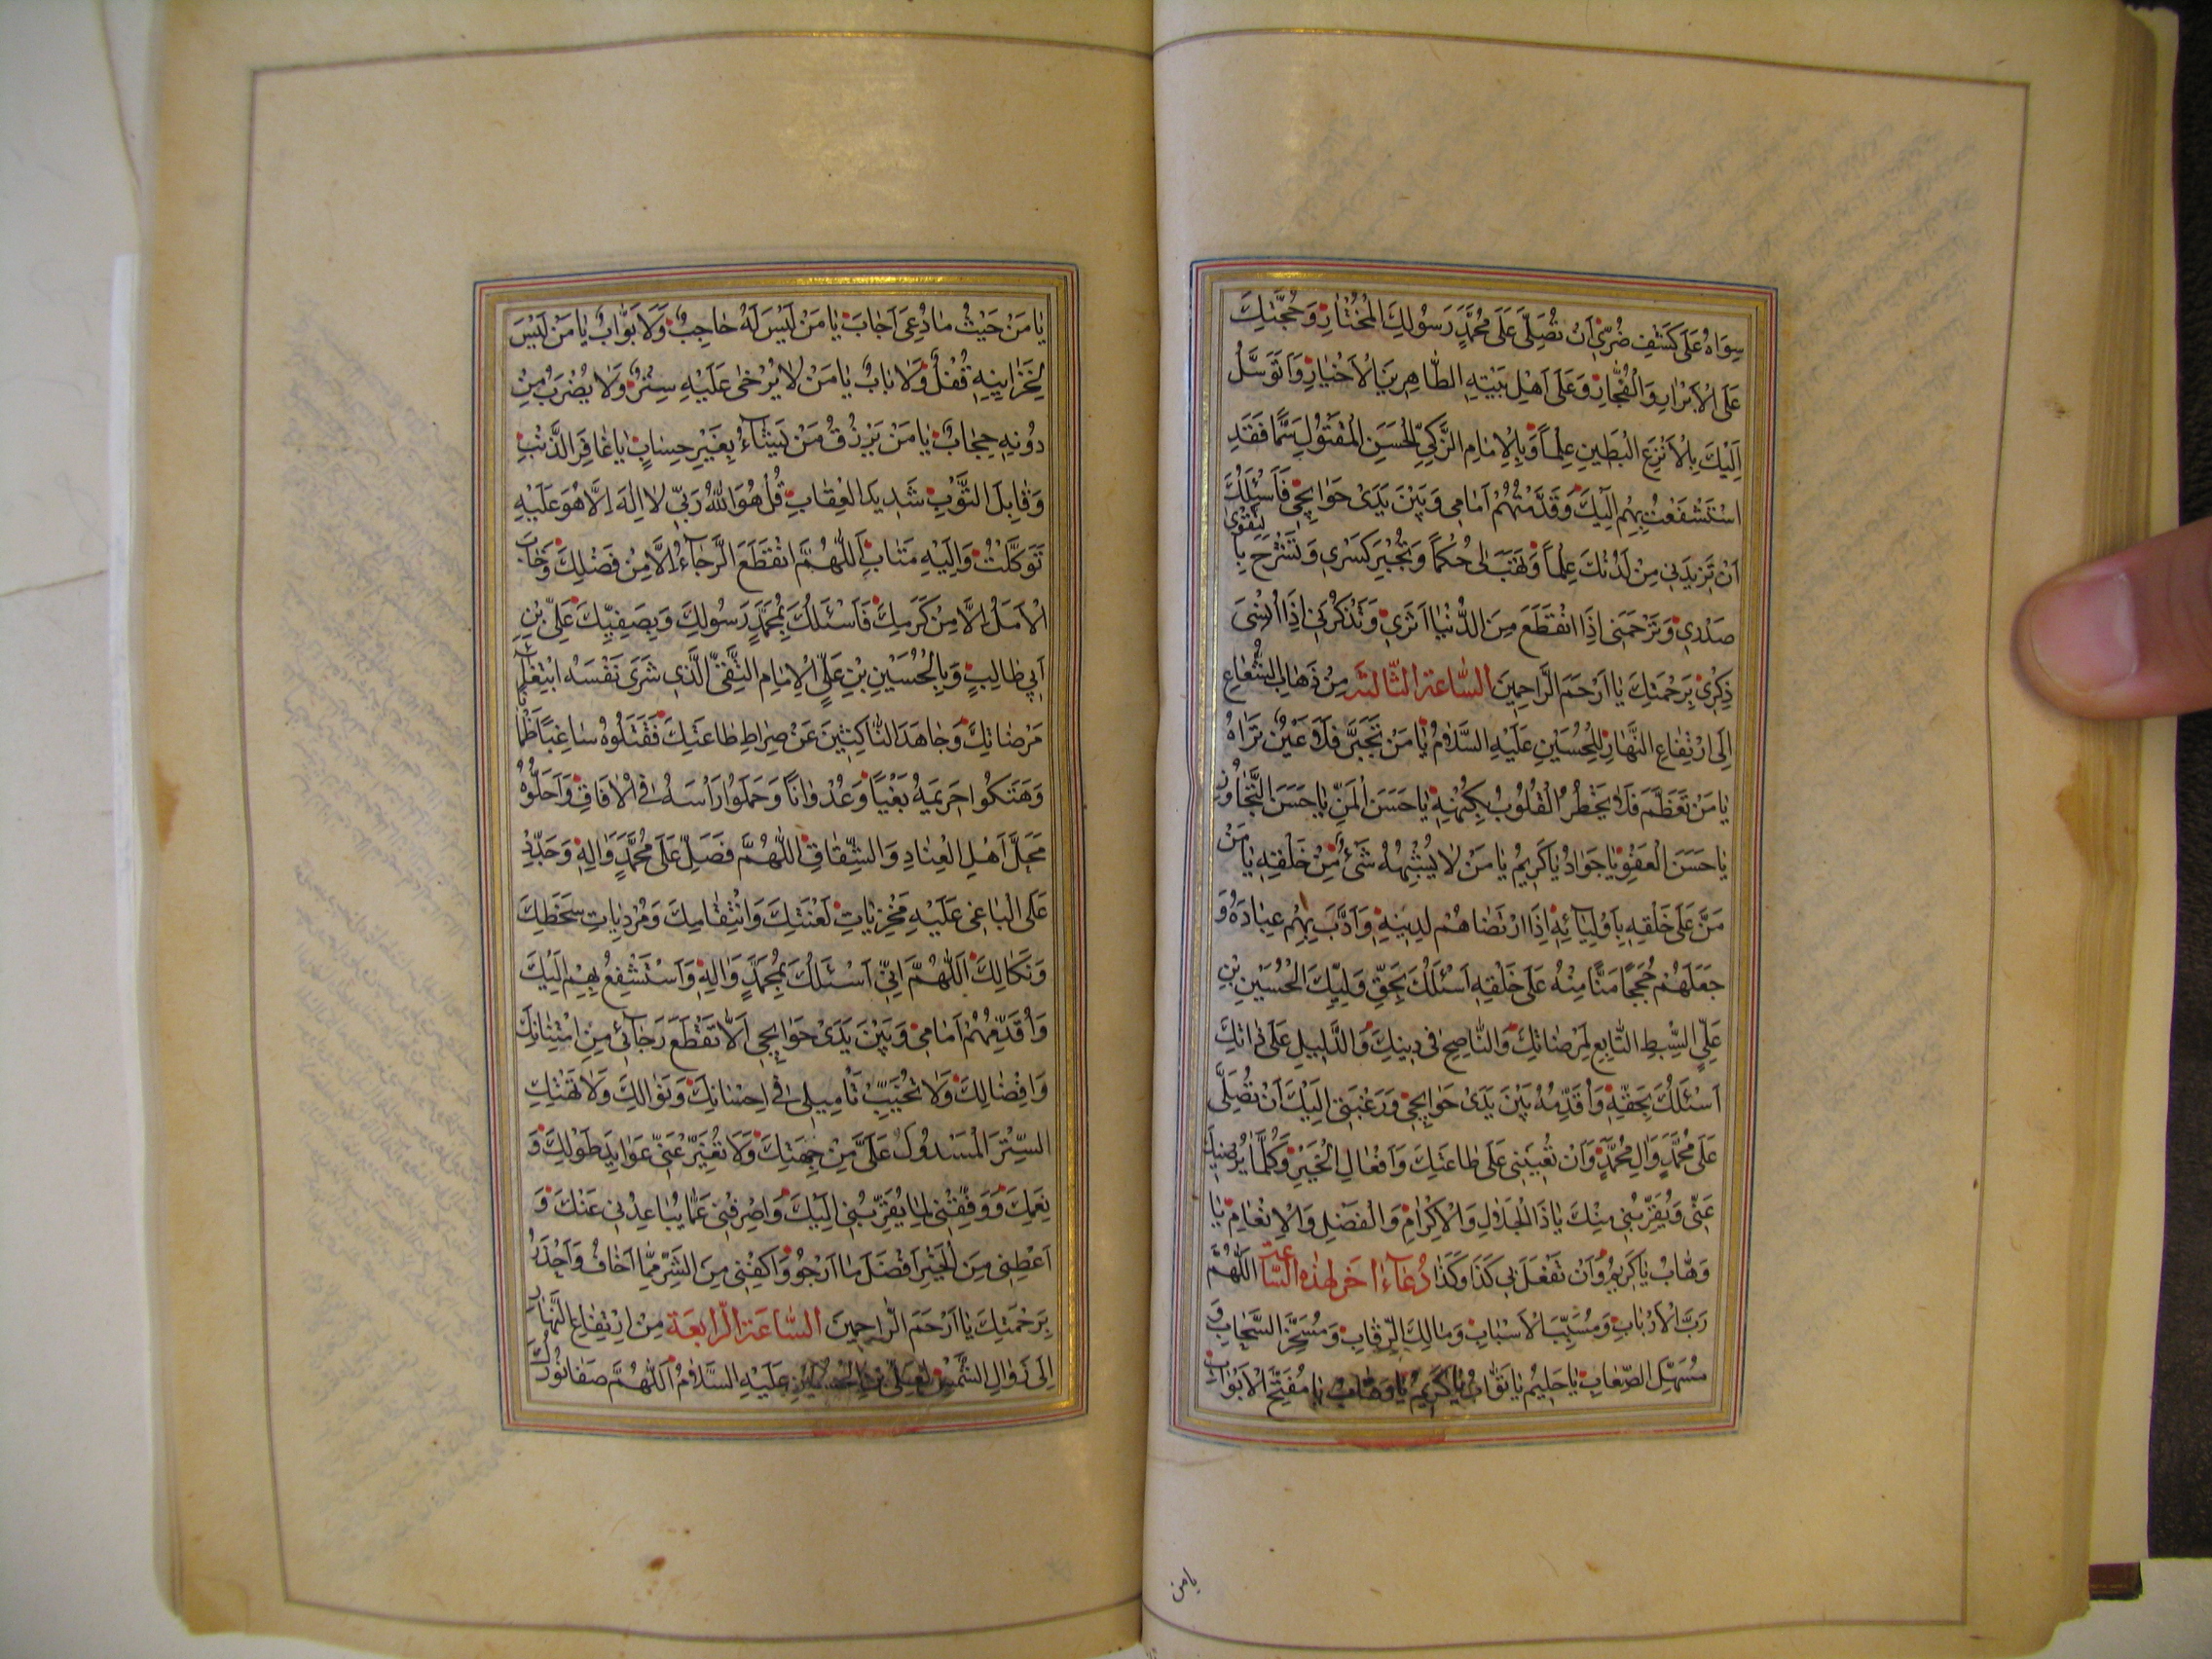 سِوَاهُ عَلَى كَشْفِ ضُرِّي اَنْ تُصَلِّيَ عَلَى مُحَمَّدٍ رَسُولِكَ الْمُخْتَارِ وَحُجَّتِكَ
عَلَى الْاَبْرَارِ وَالْفُجَّارِ وَعَلَى اَهْلِ بَيْتِهِ الطَّاهِرِينَ الْاَخْيَارِ وَاَتَوَسَّلُ
اِلَيْكَ بِالْاَنْزَعِ الْبَطِينِ عِلْمًا وَبِالْاِمَامِ الزَّكِيِّ الْحَسَنِ الْمَقْتُولِ سَمًّا فَقَدِ
اسْتَشْفَعْتُ بِهِمْ اِلَيْكَ وَقَدَّمْتُهُمْ اَمَامِي وَبَيْنَ يَدَيْ حَوَائِجِي فَاَسْئَلُكَ
اَنْ تَزِيدَنِي مِنْ لَدُنْكَ عِلْمًا وَتَهَبَ لِي حُكْمًا وَتَجْبُرَ كَسْرِي وَتَشْرَحَ بِالتَّقْوٰى
صَدْرِي وَتَرْحَمَنِي اِذَا انْقَطَعَ مِنَ الدُّنْيَا اَثَرِي وَتَذْكُرَنِي اِذَا نُسِيَ
ذِكْرِي بِرَحْمَتِكَ يَا اَرْحَمَ الرَّاحِمِينَ السَّاعَةُ الثَّالِثَةُ مِنْ ذَهَابِ الشُّعَاعِ
اِلَى ارْتِفَاعِ النَّهَارِ لِلْحُسَيْنِ عَلَيْهِ السَّلَامُ يَا مَنْ تَجَبَّرَ فَلَا عَيْنٌ تَرَاهُ
يَا مَنْ تَعَظَّمَ فَلَا يَخْطُرُ الْقُلُوبُ بِكُنْهِهِ يَا حَسَنَ الْمَنِّ يَا حَسَنَ التَّجَاوُزِ
يَا حَسَنَ الْعَفْوِ يَا جَوَادُ يَا كَرِيمُ يَا مَنْ لَا يُشْبِهُهُ شَيْءٌ مِنْ خَلْقِهِ يَا مَنْ
مَنَّ عَلَى خَلْقِهِ بِاَوْلِيَائِهِ اِذَا ارْتَضَاهُمْ لِدِينِهِ وَاَدَّبَ بِهِمْ عِبَادَهُ وَ
جَعَلَهُمْ حُجَجًا مَنًّا مِنْهُ عَلَى خَلْقِهِ اَسْئَلُكَ بِحَقِّ وَلِيِّكَ الْحُسَيْنِ بْنِ
عَلِيٍّ السِّبْطِ التَّابِعِ لِمَرْضَاتِكَ وَالنَّاصِحِ فِي دِينِكَ وَالدَّلِيلِ عَلَى ذَاتِكَ
اَسْئَلُكَ بِحَقِّهِ وَاُقَدِّمُهُ بَيْنَ يَدَيْ حَوَائِجِي وَرَغْبَتِي اِلَيْكَ اَنْ تُصَلِّيَ
عَلَى مُحَمَّدٍ وَاٰلِ مُحَمَّدٍ وَاَنْ تُعِينَنِي عَلَى طَاعَتِكَ وَاَفْعَالِ الْخَيْرِ وَكُلَّمَا يُرْضِيكَ
عَنِّي وَيُقَرِّبُنِي مِنْكَ يَا ذَا الْجَلَالِ وَالْاِكْرَامِ وَالْفَضْلِ وَالْاِنْعَامِ يَا
وَهَّابُ يَا كَرِيمُ وَاَنْ تَفْعَلَ بِي كَذَا وَكَذَا دُعَاءٌ اٰخَرُ لِهٰذِهِ السَّاعَةِ اَللّٰهُمَّ
رَبَّ الْاَرْبَابِ وَمُسَبِّبَ الْاَسْبَابِ وَمَالِكَ الرِّقَابِ وَمُسَخِّرَ السَّحَابِ وَ
مُسَهِّلَ الصِّعَابِ يَا حَلِيمُ يَا تَوَّابُ يَا كَرِيمُ يَا وَهَّابُ يَا مُفَتِّحَ الْاَبْوَابِ
يامن
يَا مَنْ حَيْثُ مَا دُعِيَ اَجَابَ يَا مَنْ لَيْسَ لَهُ حَاجِبٌ وَلَا بَوَّابٌ يَا مَنْ لَيْسَ
لِخَزَايِنِهِ قُفْلٌ وَلَا بَابٌ يَا مَنْ لَا يُرْخٰى عَلَيْهِ سِتْرٌ وَلَا يُضْرَبُ مِنْ
دُونِهِ حِجَابٌ يَا مَنْ يَرْزُقُ مَنْ يَشَاءُ بِغَيْرِ حِسَابٍ يَا غَافِرَ الذَّنْبِ
وَقَابِلَ التَّوْبِ شَدِيدَ الْعِقَابِ قُلْ هُوَ اللّٰهُ رَبِّي لَا اِلٰهَ اِلَّا هُوَ عَلَيْهِ
تَوَكَّلْتُ وَاِلَيْهِ مَتَابِ اَللّٰهُمَّ انْقَطَعَ الرَّجَاءُ اِلَّا مِنْ فَضْلِكَ وَخَابَ
الْاَمَلُ اِلَّا مِنْ كَرَمِكَ فَاَسْئَلُكَ بِمُحَمَّدٍ رَسُولِكَ وَبِصَفِيِّكَ عَلِيِّ بْنِ
اَبِي طَالِبٍ وَبِالْحُسَيْنِ بْنِ عَلِيٍّ الْاِمَامِ التَّقِيِّ الَّذِي شَرٰى نَفْسَهُ ابْتِغَاءَ
مَرْضَاتِكَ وَجَاهَدَ النَّاكِثِينَ عَنْ صِرَاطِ طَاعَتِكَ فَقَتَلُوهُ سَاغِبًا ظَمْاٰنًا
وَهَتَكُوا حَرِيمَهُ بَغْيًا وَعُدْوَانًا وَحَمَلُوا رَاْسَهُ فِي الْاٰفَاقِ وَاَحَلُّوهُ
مَحَلَّ اَهْلِ الْعِنَادِ وَالشِّقَاقِ اَللّٰهُمَّ فَصَلِّ عَلَى مُحَمَّدٍ وَاٰلِهِ وَجَدِّدْ
عَلَى الْبَاغِي عَلَيْهِ مُخْزِيَاتِ لَعْنَتِكَ وَانْتِقَامِكَ وَمُرْدِيَاتِ سَخَطِكَ
وَنَكَالِكَ اَللّٰهُمَّ اِنِّي اَسْئَلُكَ بِمُحَمَّدٍ وَاٰلِهِ وَاَسْتَشْفِعُ بِهِمْ اِلَيْكَ
وَاُقَدِّمُهُمْ اَمَامِي وَبَيْنَ يَدَيْ حَوَائِجِي اَلَّا تَقْطَعَ رَجَائِي مِنِ امْتِنَانِكَ
وَاِفْضَالِكَ وَلَا تُخَيِّبْ تَاْمِيلِي فِي اِحْسَانِكَ وَنَوَالِكَ وَلَا تَهْتِكِ
السِّتْرَ الْمَسْدُولَ عَلَيَّ مِنْ جِهَتِكَ وَلَا تُغَيِّرْ عَنِّي عَوَايِدَ طَوْلِكَ وَ
نِعَمِكَ وَوَفِّقْنِي لِمَا يُقَرِّبُنِي اِلَيْكَ وَاصْرِفْنِي عَمَّا يُبَاعِدُنِي عَنْكَ وَ
اَعْطِنِي مِنَ الْخَيْرِ اَفْضَلَ مَا اَرْجُو وَاكْفِنِي مِنَ الشَّرِّ مِمَّا اَخَافُ وَاَحْذَرُ
بِرَحْمَتِكَ يَا اَرْحَمَ الرَّاحِمِينَ السَّاعَةُ الرَّابِعَةُ مِنِ ارْتِفَاعِ النَّهَارِ
اِلَى زَوَالِ الشَّمْسِ لِعَلِيِّ بْنِ الْحُسَيْنِ عَلَيْهِ السَّلَامُ اَللّٰهُمَّ صَفَا نُورُكَ